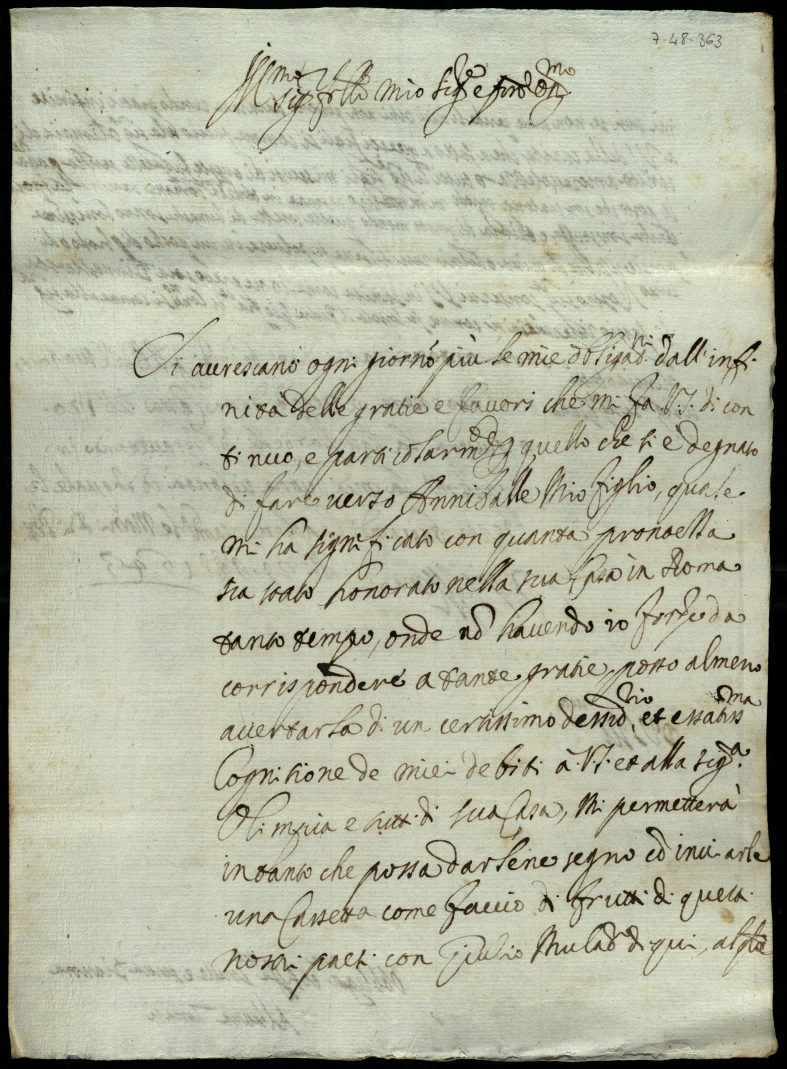 7-48-363
Ill.mo Sig.r fr̃llo mio Sig.re e p̃rõn
Si accrescano ogni giorno più le mie obligat.ni dall'infi-
nità delle gratie e favori che mi fa V.S. di con
tinuo, e particolarm.te quello che si è degnato
di fare verso Annibale Mio figlio, quale
mi ha significato con quanta prontezza
sia stato honorato nella sua Casa in Roma
tanto tempo, onde nõ havendo io forze da
corrispondere a tante gratie, posso almeno
accertarla di un certissimo desid.rio, et esatiss.ma
Cognitione de miei debiti à V.S. et alla Sig.ra
Olimpia e tutti di sua Casa, Mi permetterà
intanto che possa darlene segno cõ inviarle
una Cassetta come faccio di frutti di questi
nostri paesi con Giulio Mulad.re di qui, al